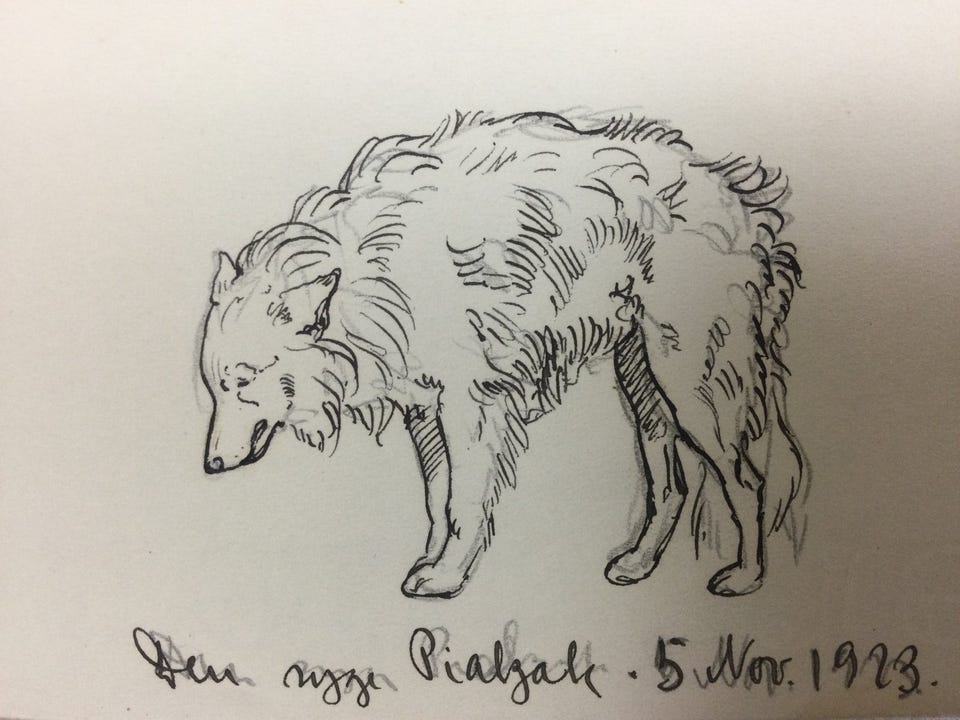 Den syge Pialzak . 5 Nov. 1923.